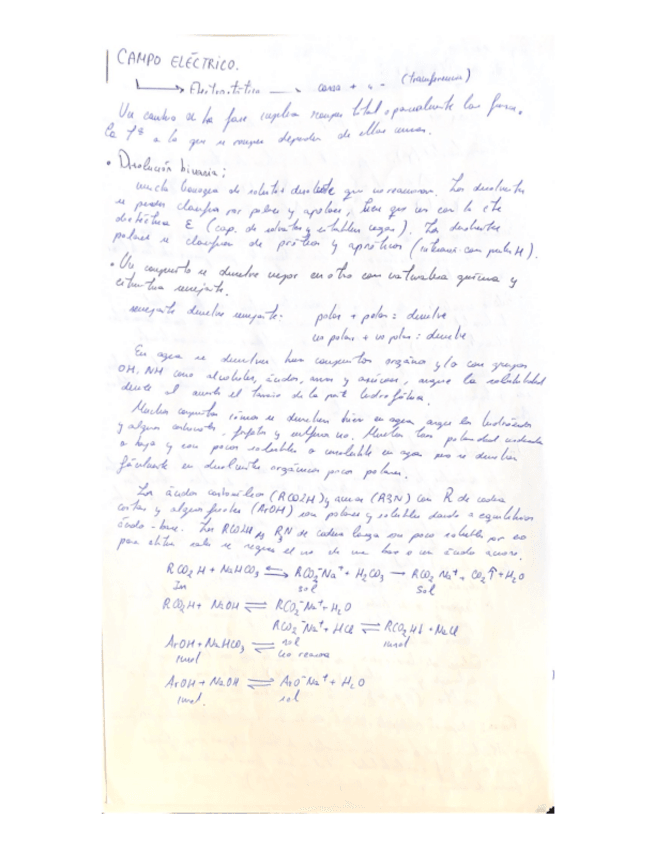 CAMPO ELÉCTRICO.
→ Electrostática carga + y - (transferencia)
Un cambio de fase implica romper total o parcialmente las fuerzas.
La Tª a la que se rompe depende de ellas
• Disolución binaria:
mezcla homogénea de soluto disolvente que no reaccionan. Los disolventes
se pueden clasificar por polares y apolares, tiene que ver con la cte
dieléctrica ε (cap. de solvatar y establecer cargas). Los disolventes
polares se clasifican de próticos y apróticos
• Un compuesto se disuelve mejor en otro con naturaleza química y
estructura semejante.
semejante disuelve semejante: polar + polar = disuelve
no polar + no polar: disuelve
En agua se disuelven bien compuestos orgánicos y/o con grupos
OH, NH como alcoholes, ácidos, aminas y azúcares, aunque la solubilidad
al aumentar el tamaño de la parte hidrofóbica.
Muchos compuestos iónicos se disuelven bien en agua, aunque los hidróxidos
y algunos carbonatos, fosfatos y sulfuros no. Muchos tienen polaridad moderada
o baja y son pocos solubles o insolubles en agua pero se disuelven
fácilmente en disolventes orgánicos pocos polares.
Los ácidos carboxílicos (RCO2H) y aminas (R3N) con R de cadena
corta y algunos fenoles (ArOH) son polares y solubles dando a equilibrios
ácido-base. Los RCO2H y R3N de cadena larga son poco solubles por eso
para obtener sales se requiere el uso de una base o un ácido
RCO2H + NaHCO3 ⇌ RCO2⁻Na⁺ + H2CO3 → RCO2⁻Na⁺ + CO2↑ + H2O
sol sol
RCO2H + NaOH ⇌ RCO2⁻Na⁺ + H2O
RCO2⁻Na⁺ + HCl ⇌ RCO2H↓ + NaCl
ArOH + NaHCO3 ⇌ sol insol
insol no reacciona
ArOH + NaOH ⇌ ArO⁻Na⁺ + H2O
insol. sol